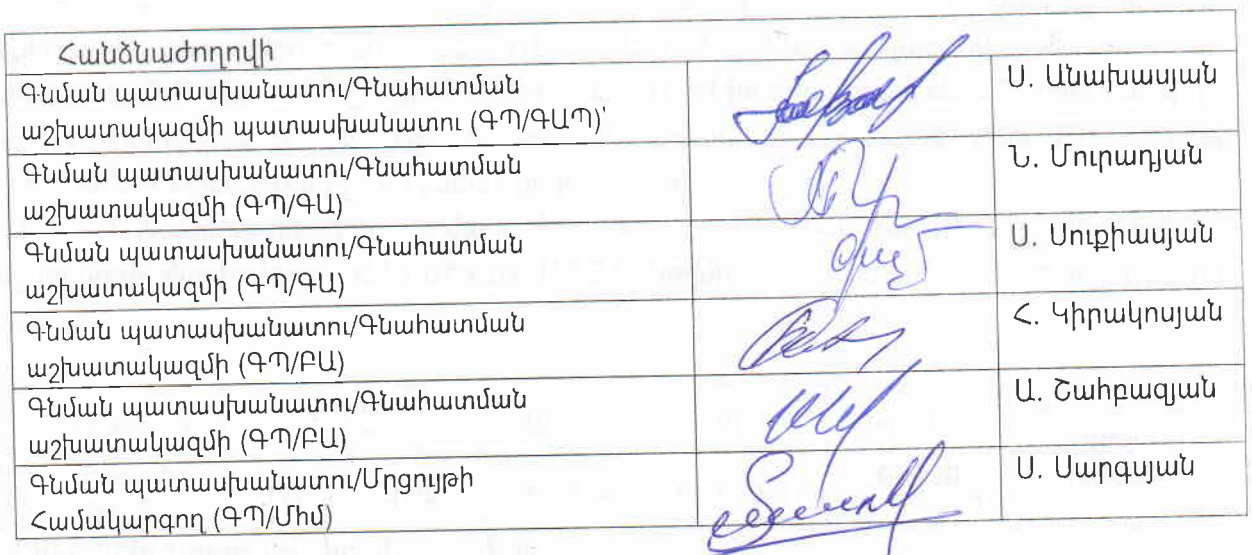 Հանձնաժողովի
Գնման պատասխանատու/Գնահատման
աշխատակազմի պատասխանատու (ԳՊ/ԳԱՊ)՝
Ս. Անախասյան
Գնման պատասխանատու/Գնահատման
աշխատակազմի (ԳՊ/ԳԱ)
Ն. Մուրադյան
Գնման պատասխանատու/Գնահատման
աշխատակազմի (ԳՊ/ԳԱ)
Ս. Սուքիասյան
Գնման պատասխանատու/Գնահատման
աշխատակազմի (ԳՊ/ԲԱ)
Հ. Կիրակոսյան
Գնման պատասխանատու/Գնահատման
աշխատակազմի (ԳՊ/ԲԱ)
Ա. Շահբազյան
Գնման պատասխանատու/Մրցույթի
Համակարգող (ԳՊ/Մհմ)
Ս. Սարգսյան